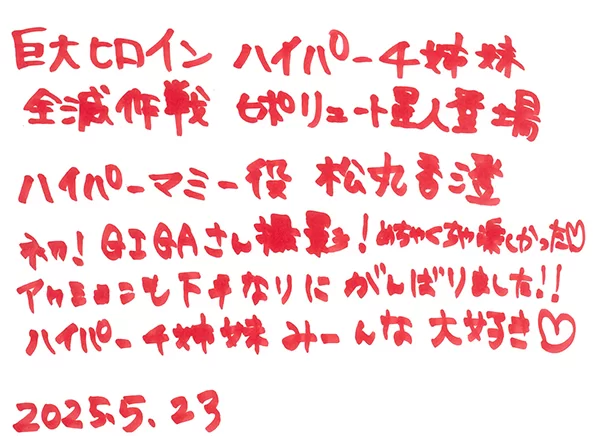 巨大ヒロイン ハイパー4姉妹
全滅作戦 ヒポリュート星人登場
ハイパーマミー役 松丸香澄
初！GIGAさん撮影！めちゃくちゃ楽しかった♡
アクションも下手なりにがんばりました!!
ハイパー4姉妹みーんな大好き♡
2025.5.23